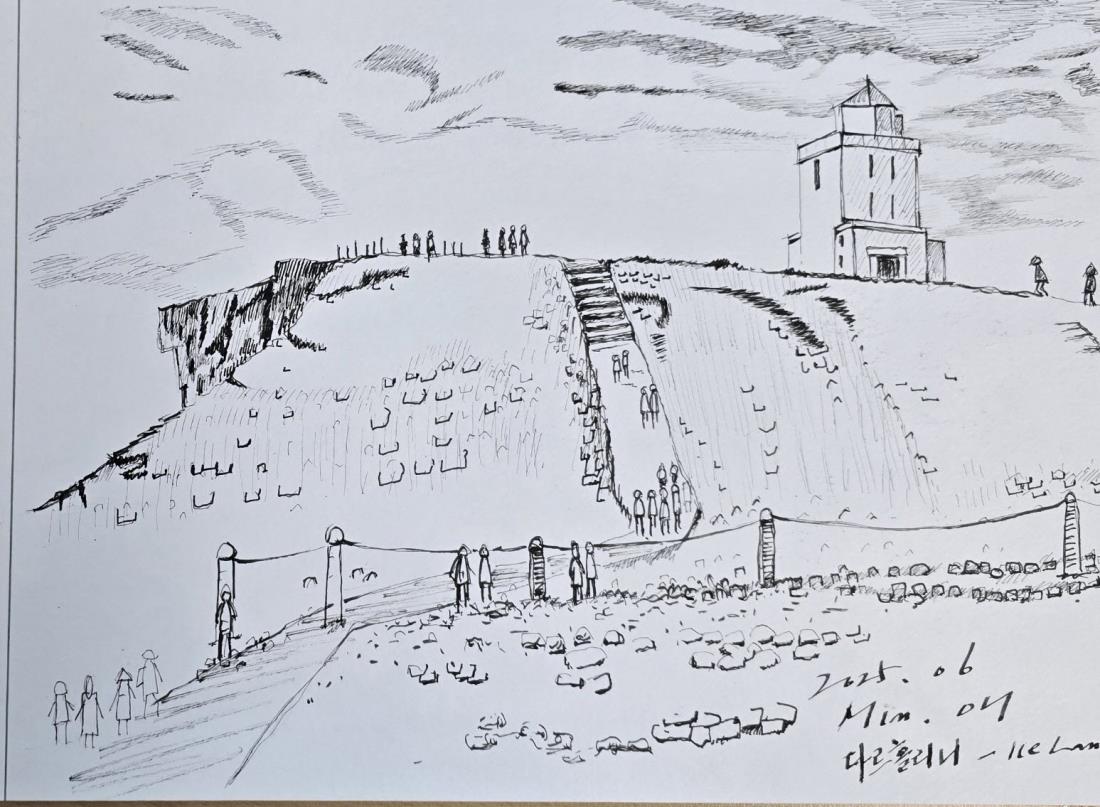 2025. 06
Min.
다르홀리니 - Icelan